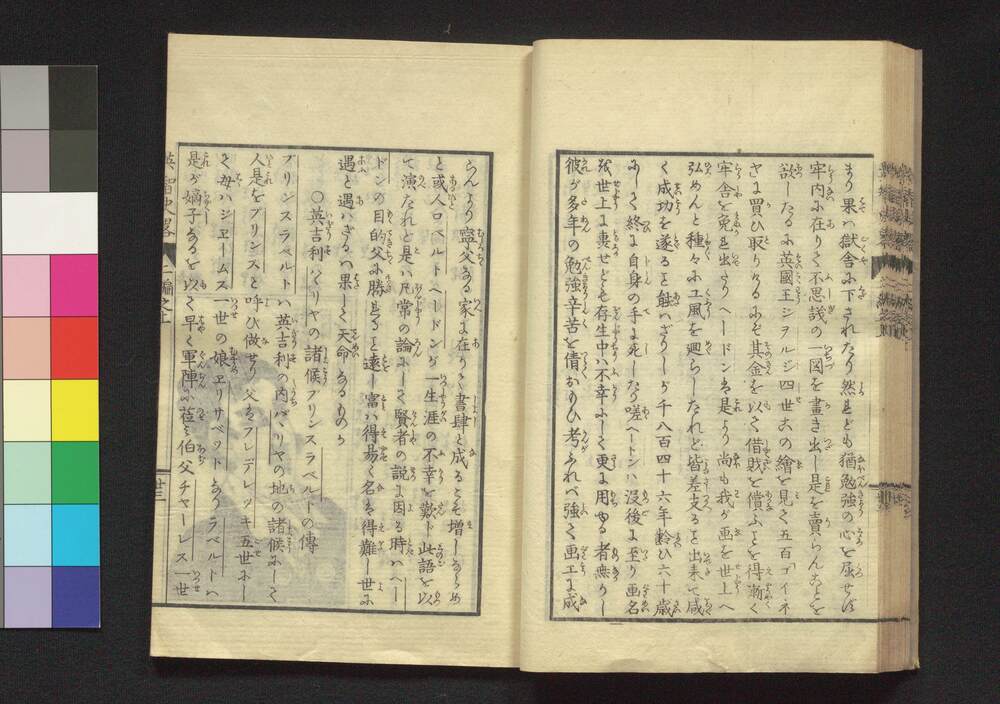 まり果ハ獄舎に下されたり然れども猶勉強の心を屈せず
牢内に在りて不思議の一図を畫き出し是を賣らんことを
設したるに英國王ジヲルジ四世其の繪を見て五百ゴイネ
さに買ひ取りけるにぞ其金を以て借財を償ふことを得漸く
牢舎を免れ出たりヘードン出是より尚も我が画を世上へ
弘めんと種々に工風を廻らしたれど皆差支ること出来て咸
く成功を遂ること能はざりしが千八百四十六年齢ひ六十歳
にして終に自身の手に死したり嗟ヘートンハ没後に至り画名
を世上に轟せども存生中ハ不幸にして更に用ゆる者無かりし
彼が多年の勉強辛苦を倩おもひ考ふれバ強て画工に成
らんより寧父なる家に在りて書肆と成ること増しならめ
と或人ロベルトヘードンが一生涯の不幸を歎ト此語を以
て演たれど是ハ凡常の論にして賢者の説に因る時ハヘー
ドンの目的父に勝れること遠し富ハ得易く名を得難し世に
遇と遇ハざるハ果して天命なるものか
○英吉利バヾリヤの諸候プリンスラベルトの傳
プリンスラベルトハ英吉利の内バヾリヤの地の諸候にして
人是をプリンスと呼び做せり父なるフレデレッキ五世にし
て母ハジヱームス一世の娘ヱリサベットなりラベルトハ
是が嫡子なるを以て早く軍陣に莅ミ伯父チャーレス一世
英智史畧
二編之上
廿三